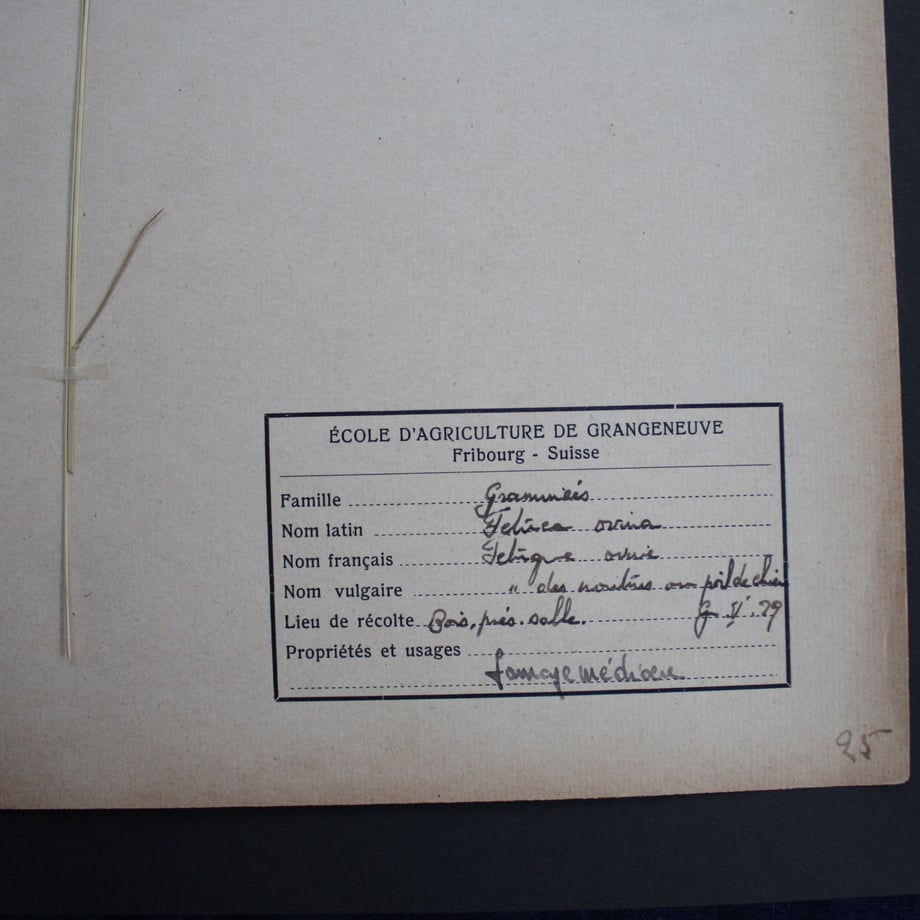 ÉCOLE D'AGRICULTURE DE GRANGENEUVE
Fribourg - Suisse
Famille Graminées
Nom latin Fetuca ovina
Nom français Fétuque ovine
Nom vulgaire " des moutons ou poil de chien
Lieu de récolte Bois, prés. sable. G. V. 29
Propriétés et usages
fourrage médiocre
25